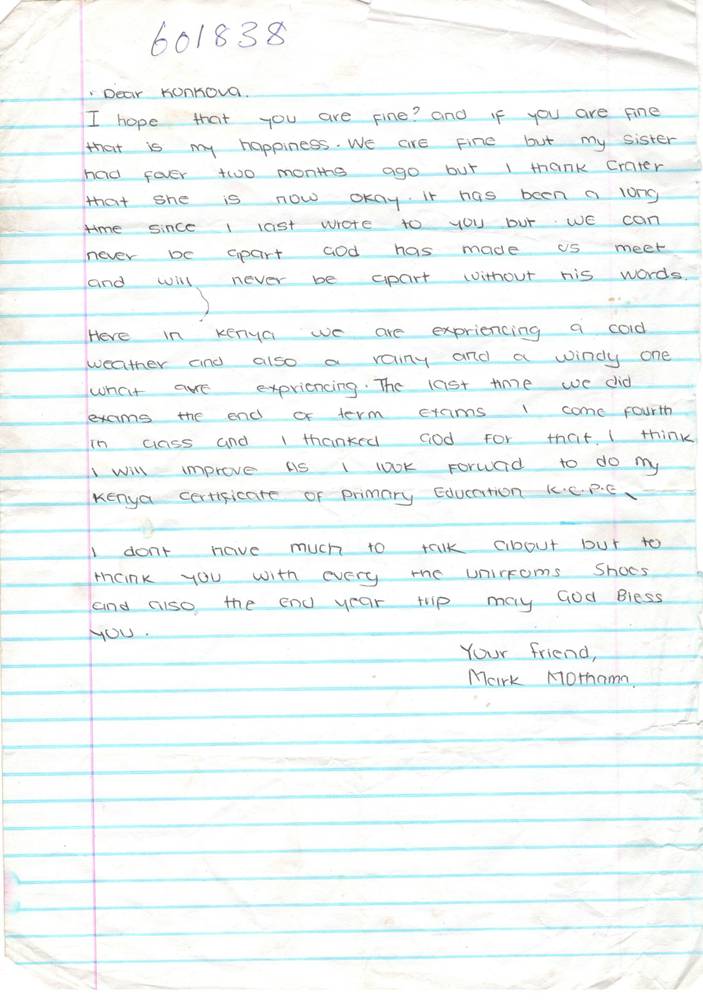 601838
Dear Konkova.
I hope that you are fine? and if you are fine
that is my happiness. We are fine but my sister
had fever two months ago but I thank Crater
that she is now okay. it has been a long
time since I last wrote to you but we can
never be apart God has made us meet
and will never be apart without his words.
Here in Kenya we are expriencing a cold
weather and also a rainy and a windy one
what are expriencing. The last time we did
exams the end of term exams I come fourth
in class and I thanked God for that. I think
I will improve As I look forwad to do my
Kenya Certificate of Primary Education K.C.P.E
I dont have much to talk about but to
thank you with every the unirfoms Shoes
and also the end year trip may God Bless
you.
Your friend,
Mark